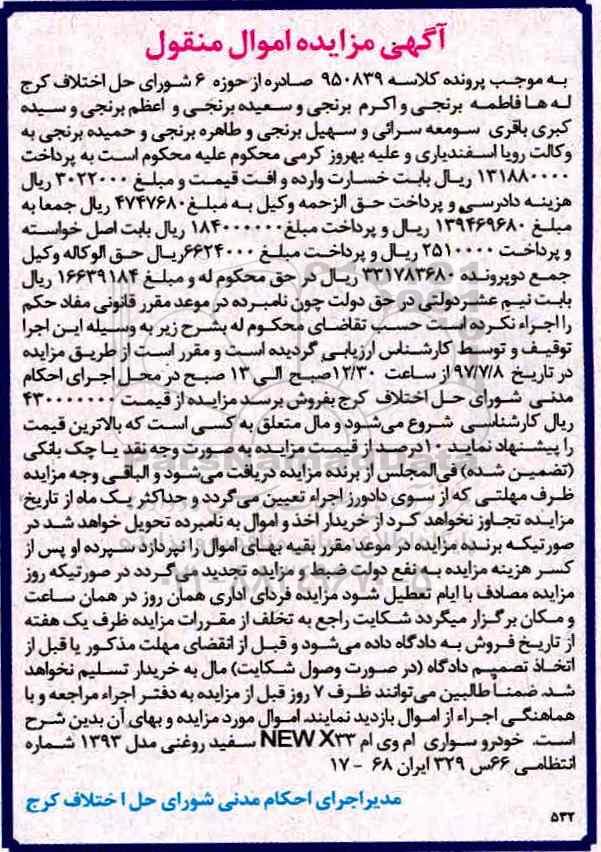 آگهی مزایده اموال منقول
به موجب پرونده کلاسه ۹۵۰۸۳۹ صادره از حوزه ۶ شورای حل اختلاف کرج
له ها فاطمه برنجی و اکرم برنجی و سعیده برنجی و اعظم برنجی و سیده
کبری باقری سومعه سرائی و سهیل برنجی و طاهره برنجی و حمیده برنجی به
وکالت رویا اسفندیاری و علیه بهروز کرمی محکوم علیه محکوم است به پرداخت
۱۳۱۸۸۰۰۰۰ ریال بابت خسارت وارده و افت قیمت و مبلغ ۳۰۲۲۰۰۰ ریال
هزینه دادرسی و پرداخت حق الزحمه وکیل به مبلغ ۴۷۴۷۶۸۰ ریال جمعا به
مبلغ ۱۳۹۴۶۹۶۸۰ ریال و پرداخت مبلغ ۱۸۴۰۰۰۰۰۰ ریال بابت اصل خواسته
و پرداخت ۲۵۱۰۰۰۰ ریال و پرداخت مبلغ ۶۶۲۴۰۰۰ ریال حق الوکاله وکیل
جمع دو پرونده ۳۳۱۷۸۳۶۸۰ ریال در حق محکوم له و مبلغ ۱۶۶۳۹۱۸۴ ریال
بابت نیم عشر دولتی در حق دولت چون نامبرده در موعد مقرر قانونی مفاد حکم
را اجراء نکرده است حسب تقاضای محکوم له بشرح زیر به وسیله این اجرا
توقیف و توسط کارشناس ارزیابی گردیده است و مقرر است از طریق مزایده
در تاریخ ۹۷/۷/۸ از ساعت ۱۲/۳۰صبح الی ۱۳ صبح در محل اجرای احکام
مدنی شورای حل اختلاف کرج بفروش برسد مزایده از قیمت ۴۳۰۰۰۰۰۰۰
ریال کارشناسی شروع می‌شود و مال متعلق به کسی است که بالاترین قیمت
را پیشنهاد نماید ۱۰درصد از قیمت مزایده به صورت وجه نقد یا چک بانکی
(تضمین شده) فی‌المجلس از برنده مزایده دریافت می‌شود و الباقی وجه مزایده
ظرف مهلتی که از سوی دادورز اجراء تعیین می‌گردد و حداکثر یک ماه از تاریخ
مزایده تجاوز نخواهد کرد از خریدار اخذ و اموال به نامبرده تحویل خواهد شد در
صورتیکه برنده مزایده در موعد مقرر بقیه بهای اموال را نپردازد سپرده او پس از
کسر هزینه مزایده به نفع دولت ضبط و مزایده تجدید می‌گردد در صورتیکه روز
مزایده مصادف با ایام تعطیل شود مزایده فردای اداری همان روز در همان ساعت
و مکان برگزار میگردد شکایت راجع به تخلف از مقررات مزایده ظرف یک هفته
از تاریخ فروش به دادگاه داده می‌شود و قبل از انقضای مهلت مذکور یا قبل از
اتخاذ تصمیم دادگاه (در صورت وصول شکایت) مال به خریدار تسلیم نخواهد
شد. ضمناً طالبین می‌توانند ظرف ۷ روز قبل از مزایده به دفتر اجراء مراجعه و با
هماهنگی اجراء از اموال بازدید نمایند. اموال مورد مزایده و بهای آن بدین شرح
است. خودرو سواری ام وی ام NEW X۳۳ سفید روغنی مدل ۱۳۹۳ شماره
انتظامی ۶۶س ۳۲۹ ایران ۶۸ - ۱۷
مدیر اجرای احکام مدنی شورای حل اختلاف کرج
۵۳۲